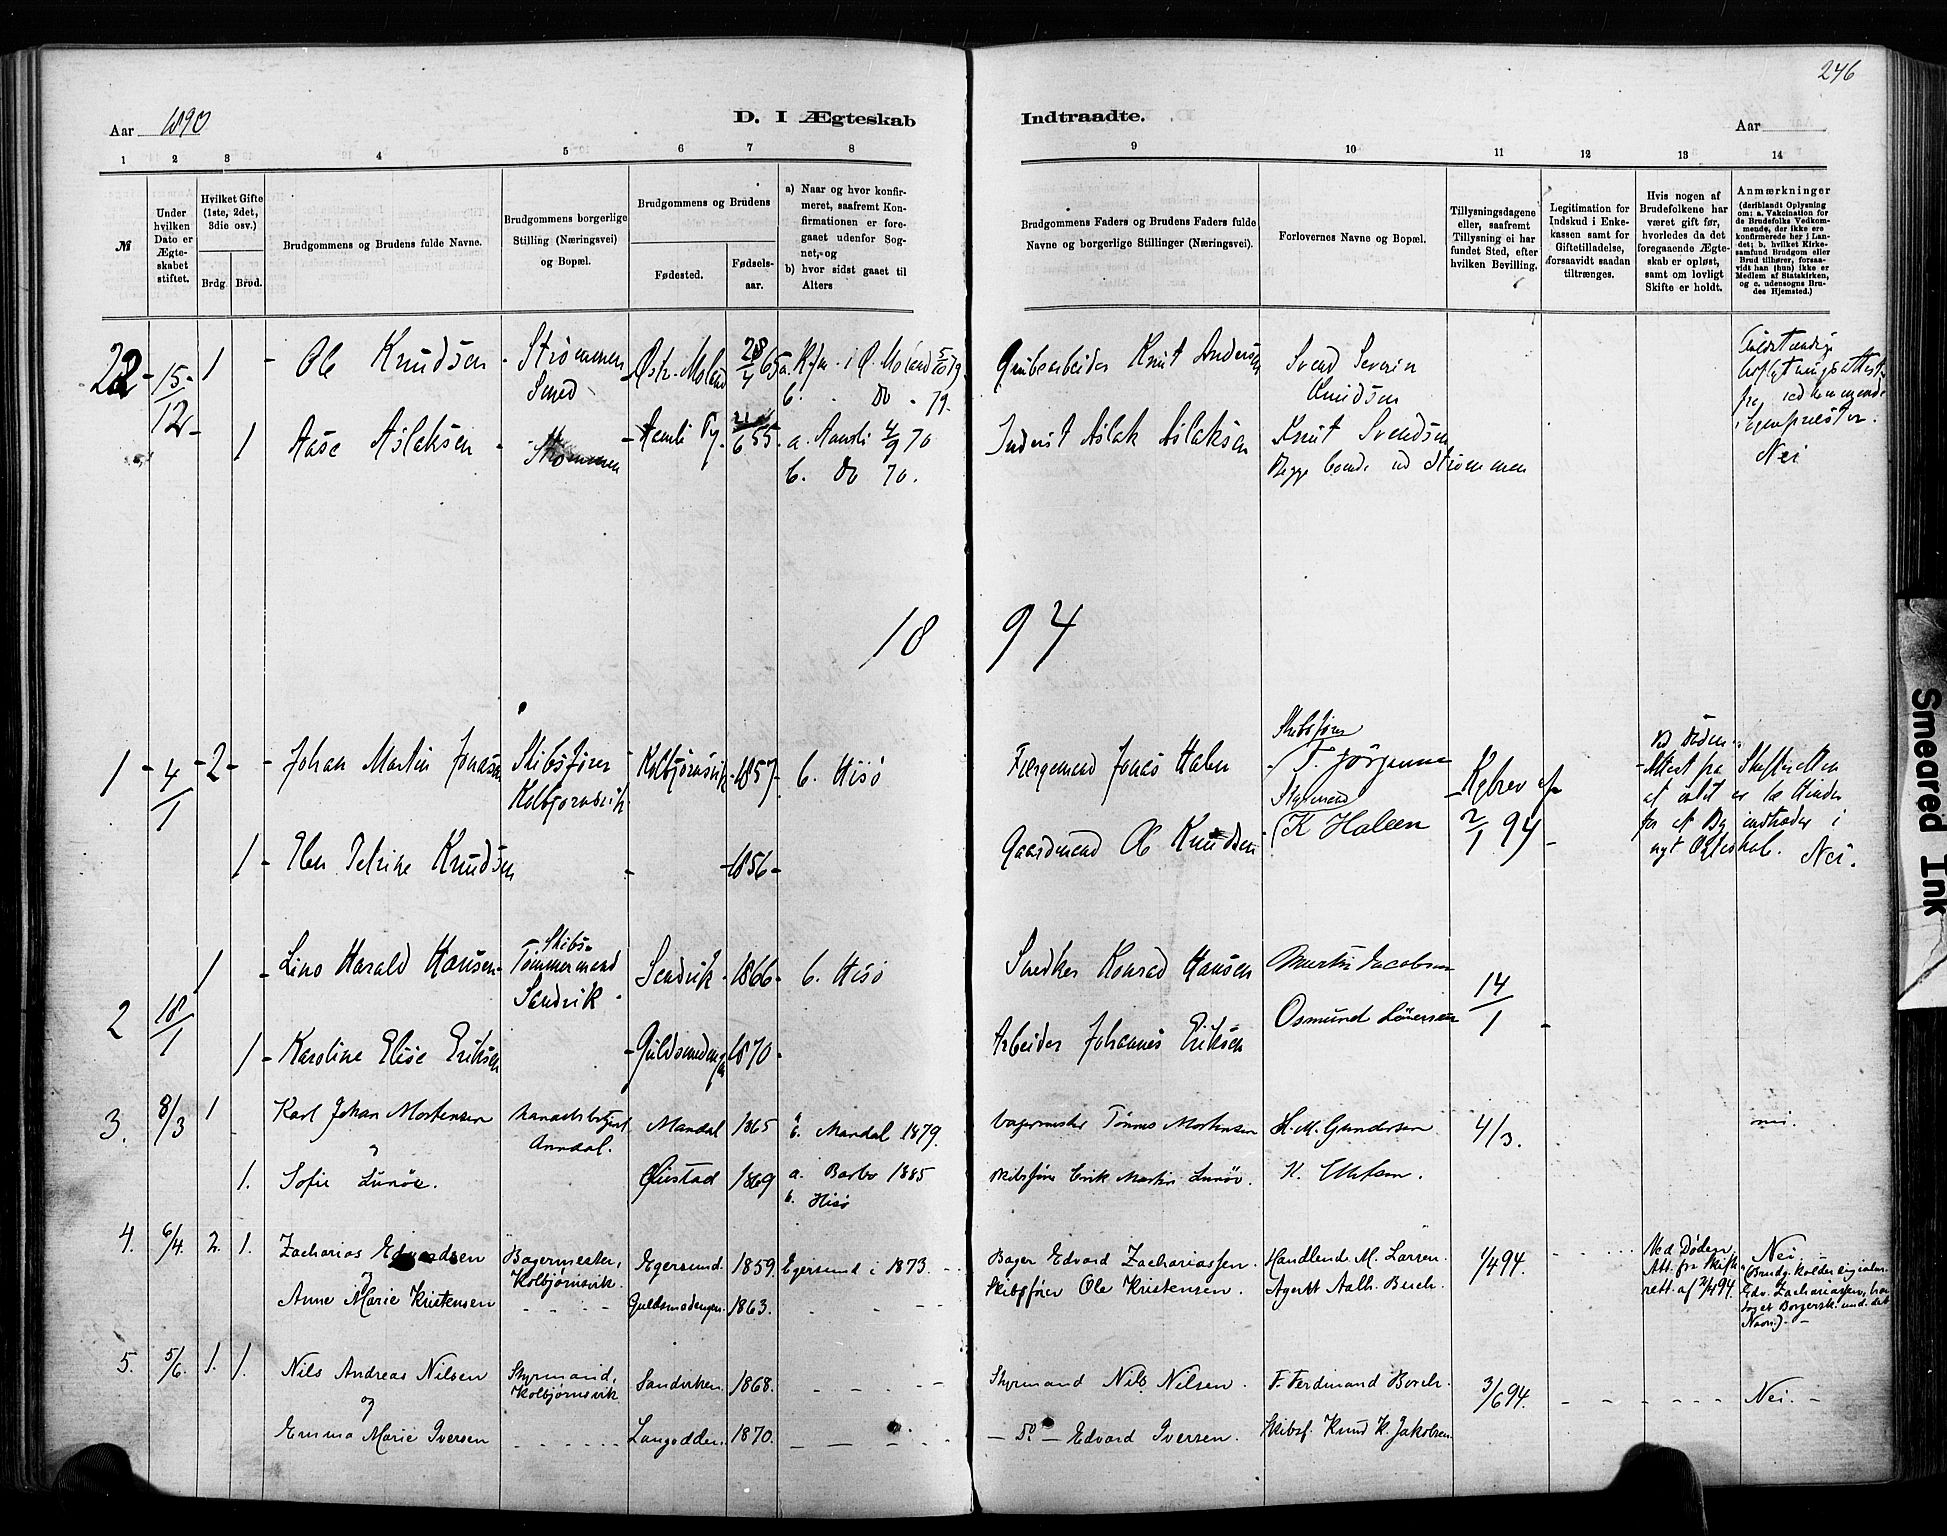 246
Aar 1890
D. I Ægteskab
Indtraadte.
Aar
1 2 3 4 5 6 7 8
9 10 11 12 13 14
№
Under
hvilken
Dato er
Ægte-
skabet
stiftet.
Hvilket Gifte
(1ste, 2det,
3die osv.)
Brdg.
Brud.
Brudgommens og Brudens fulde Navne.
Brudgommens borgerlige
Stilling (Næringsvei)
og Bopæl.
Brudgommens og Brudens
Fødested.
Fødsels-
aar.
a) Naar og hvor konfir-
meret, saafremt Kon-
firmationen er fore-
gaaet udenfor Sog-
net, og
b) hvor sidst gaaet til
Alters
Brudgommens Faders og Brudens Faders fulde
Navne og borgerlige Stillinger (Næringsvei).
Forlovernes Navne og Bopæl.
Tillysningsdagene
eller, saafremt
Tillysning ei har
fundet Sted, efter
hvilken Bevilling.
Legitimation for
Indskud i Enke-
kassen samt for
Giftetilladelse,
forsaavidt saadan
tiltrænges.
Hvis nogen af
Brudefolkene har
været gift før,
hvorledes da det
foregaaende Ægte-
skab er opløst,
samt om lovligt
Skifte er holdt.
Anmærkninger
(deriblandt Oplysning
om: a. Vakcination for
de Brudefolks Vedkom-
mende, der ikke ere
konfirmerede her i Lan-
det; b. hvilket Kirke-
samfund Brudgom eller
Brud tilhører, forsaa-
vidt han (hun) ikke er
Medlem af Statskirken,
og c. udensogns Bru-
des Hjemsted.)
22 - 15/12 - 1 - Ole Knudsen - Strømmen
Smed
28/4 65
Knut Andersen
Svend Severin
Knudsen
1 Aase Aslaksen - Strømmen
55
a. 70
b. Do 70.
Inderst Aslak Aslaksen
Knut Svendsen
Begge Strømmen
Nei
18 94
1 - 4/1 - 2 - Johan Martin Jonassen
Skibsfører
Kolbjørnsvik
Kolbjørnsvik - 1857 - b. Hisø
Jonas
Skibsfører
T. Jørgensen
Styrmand
Kgbrev af
2/1 94 -
1 - Petrine Knudsen - 1856 -
Gaardmand Ole Knudsen
Nei.
2 18/1 1 - Lino Harald Hansen -
Skibs-
Tømmermand
Sandvik -
Sandvik - 1866 - b. Hisø
Snedker Konrad Hansen
Martin Jacobsen
14/1 -
1 - Karoline Elise Eriksen - Guldsmedengen 1870 -
Arbeider Johannes Eriksen
Osmund
3. 8/3 1 Karl Johan Mortensen
og
Arendal.
Mandal 1865 b. Mandal 1879.
Bagermester Tønnes Mortensen
H. M. Gundersen
4/3.
nei.
1. Sofie Lunøe.
Øiestad 1869 a. Barbo 1885
b. Hisø
Skibsfører Erik Martin Lunøe.
K.
4. 6/4. 2. 1. Zacharias Edvardsen
og
Bagermester,
Kolbjørnsvik.
Egersund. 1859. Egersund i 1873.
Bager Edvard Zachariassen.
Handlende M. Larsen.
1/4 94.
Ved Døden
Att. fra Skifte-
rett. af 2/4 94.
Nei
Anne Marie Kristensen
Guldsmedengen. 1863.
Skibsfører Ole Kristensen.
Agent Aalh. Buch.
5. 5/6. 1. 1. Nils Andreas Nilsen
og
Styrmand,
Kolbjørnsvik
Sandviken. 1868.
Styrmand Nils Nilsen.
F. Ferdinand Borch.
3/6 94.
Nei. -
Emma Marie Iversen
Langodden. 1870.
- Do - Edvard Iversen.
Skibsf. Knud K. Jakobsen
Smeared Ink